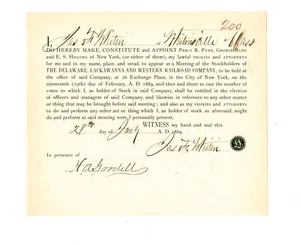 200
I, Jas F. Whitin, Whitinsville, Mass
DO HEREBY MAKE, CONSTITUTE and APPOINT PERCY R. PYNE, GEORGE
and E. S. HIGGINS, of New York City, (or either of them), my lawful PROXIES and ATTORNEYS
for me and in my name, place, and stead, to appear at a Meeting of the Stockholders of
THE DELAWARE, LACKAWANNA AND WESTERN RAILROAD COMPANY, to be held
at the office of said Company, 26 Exchange Place, in the City of New York, on the
nineteenth (19th) day of February, A. D. 1889, and then and there to cast the number of
votes to which I, as holder of Stock in said Company, shall be entitled in the election
of officers and managers of said Company, and likewise in reference to any other matter
or thing that may be brought before said meeting; and also as my PROXIES and ATTORNEYS
to do and perform any other act or thing which I, as holder of stock as aforesaid, might
do and perform at said meeting were I personally present.
WITNESS my hand and seal this
28th day of Jany A. D. 1889.
Jas F. Whitin
In presence of
H A Goodell